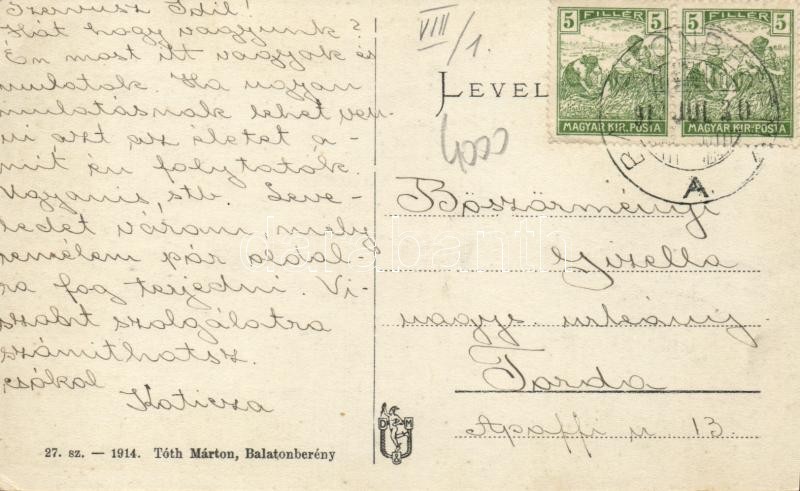 Szervusz Idil!
Hát hogy vagyunk?
Én most itt vagyok és
mulatok. Ha ugyan
mulatásnak lehet ven-
ni azt az életet a-
mit én folytatok.
Ugyanis, stb. Leve-
ledet várom, mely
remélem pár oldal-
ra fog terjedni. Vi-
szont szolgálatra
számíthatsz.
csókol
Katicza
27. sz. — 1914. Tóth Márton, Balatonberény
VIII/1.
LEVEL
5 FILLÉR 5
MAGYAR KIR. POSTA
5 FILLÉR 5
MAGYAR KIR. POSTA
JUL 20
A
Böszörményi
Gizella
nagys. urleány
Torda
Apaffi u. 13.
D M
darabanth